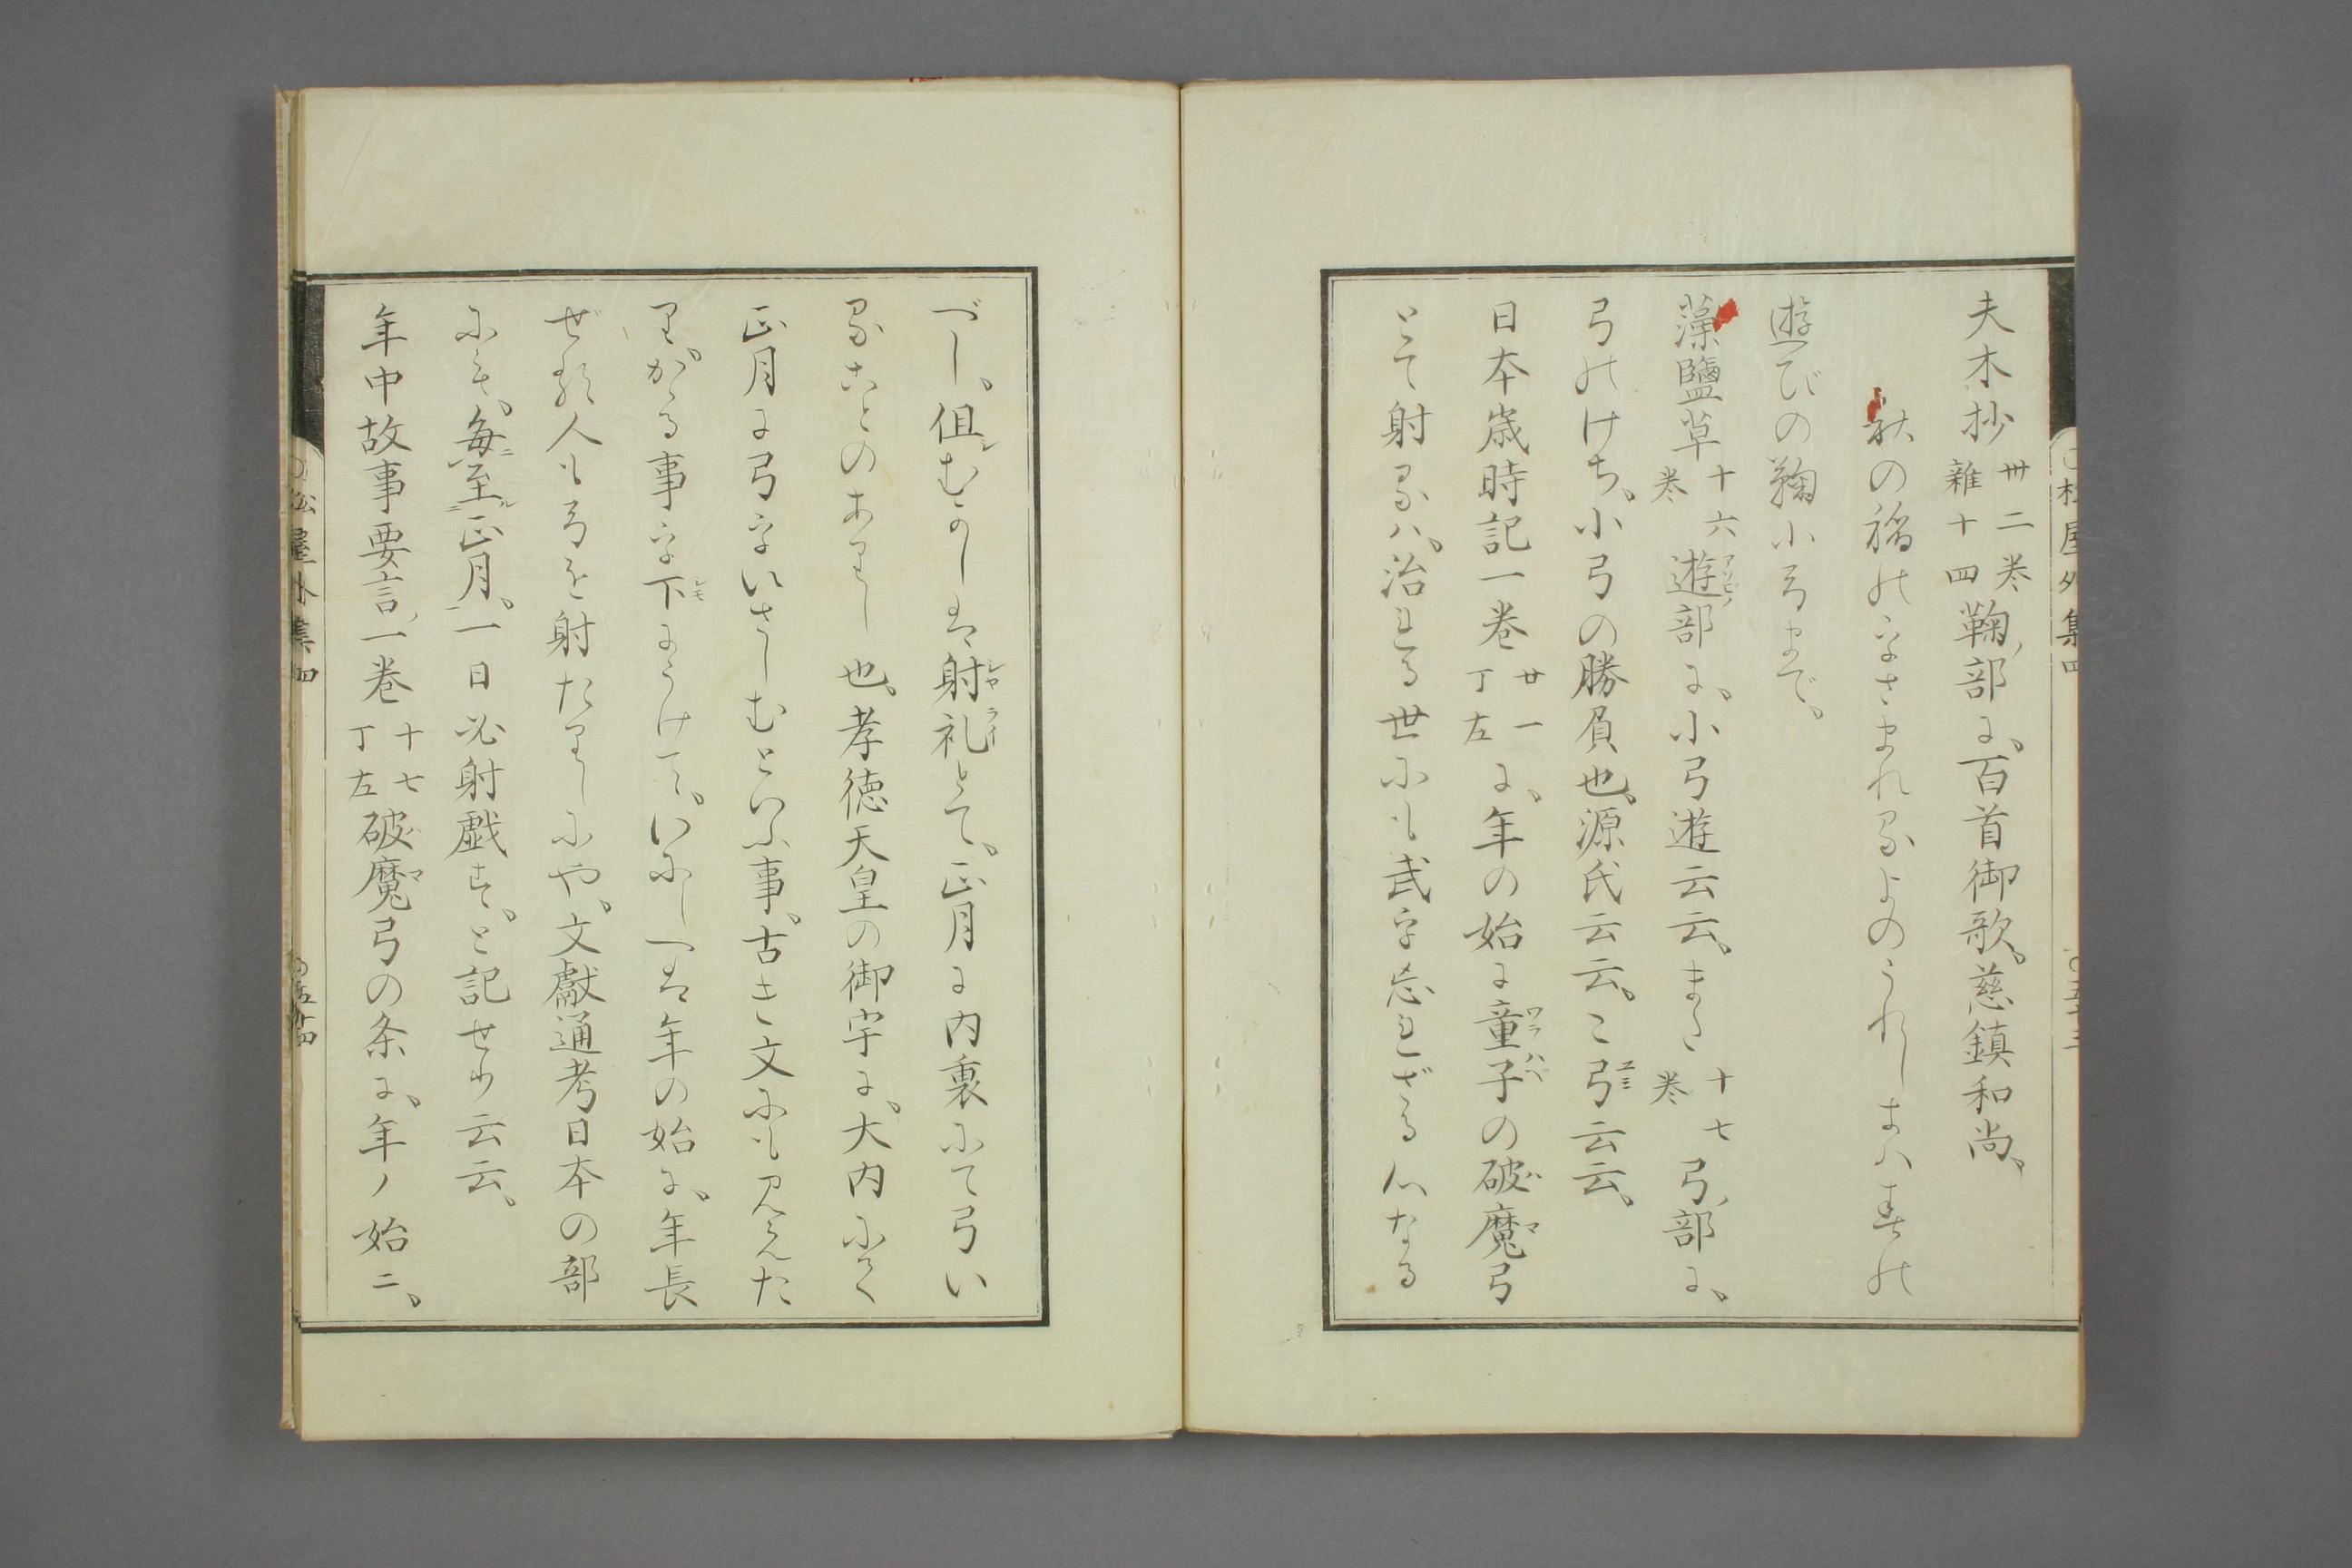 夫木抄卅二巻雑十四鞠ノ部に、百首御歌。慈鎮和尚、
秋の稲のをさまれるよのうれしきハまきの
遊びの鞠小弓まで、
藻鹽草十六巻遊アソビノ部に、小弓遊云云、また十七巻弓ノ部に、
弓のけち、小弓の勝負也、源氏云云。こ弓ユミ云云、
日本歳時記一巻廿一丁左に、年の始に童子ワラハベの破魔ハマ弓
とて射るハ、治れる世にも武を忘れざる心なる
べし、但シむかしは射礼ジヤライとて、正月に内裏にて弓い
ることのありし也、孝徳天皇の御宇に、大内にて
正月に弓をいさしむといふ事、古き文にも見えた
り、かゝる事を下シモにうけて、いにしへは年の始に、年長
ぜる人も弓を射たりしにや、文獻通考日本の部
にも、毎ニ至ルニ正月ノ一日必射戯す、と記せり云云、
年中故事要言ノ一巻十七丁左破魔ハマ弓の条に、年ノ始ニ、
松屋外集四
松屋外集四